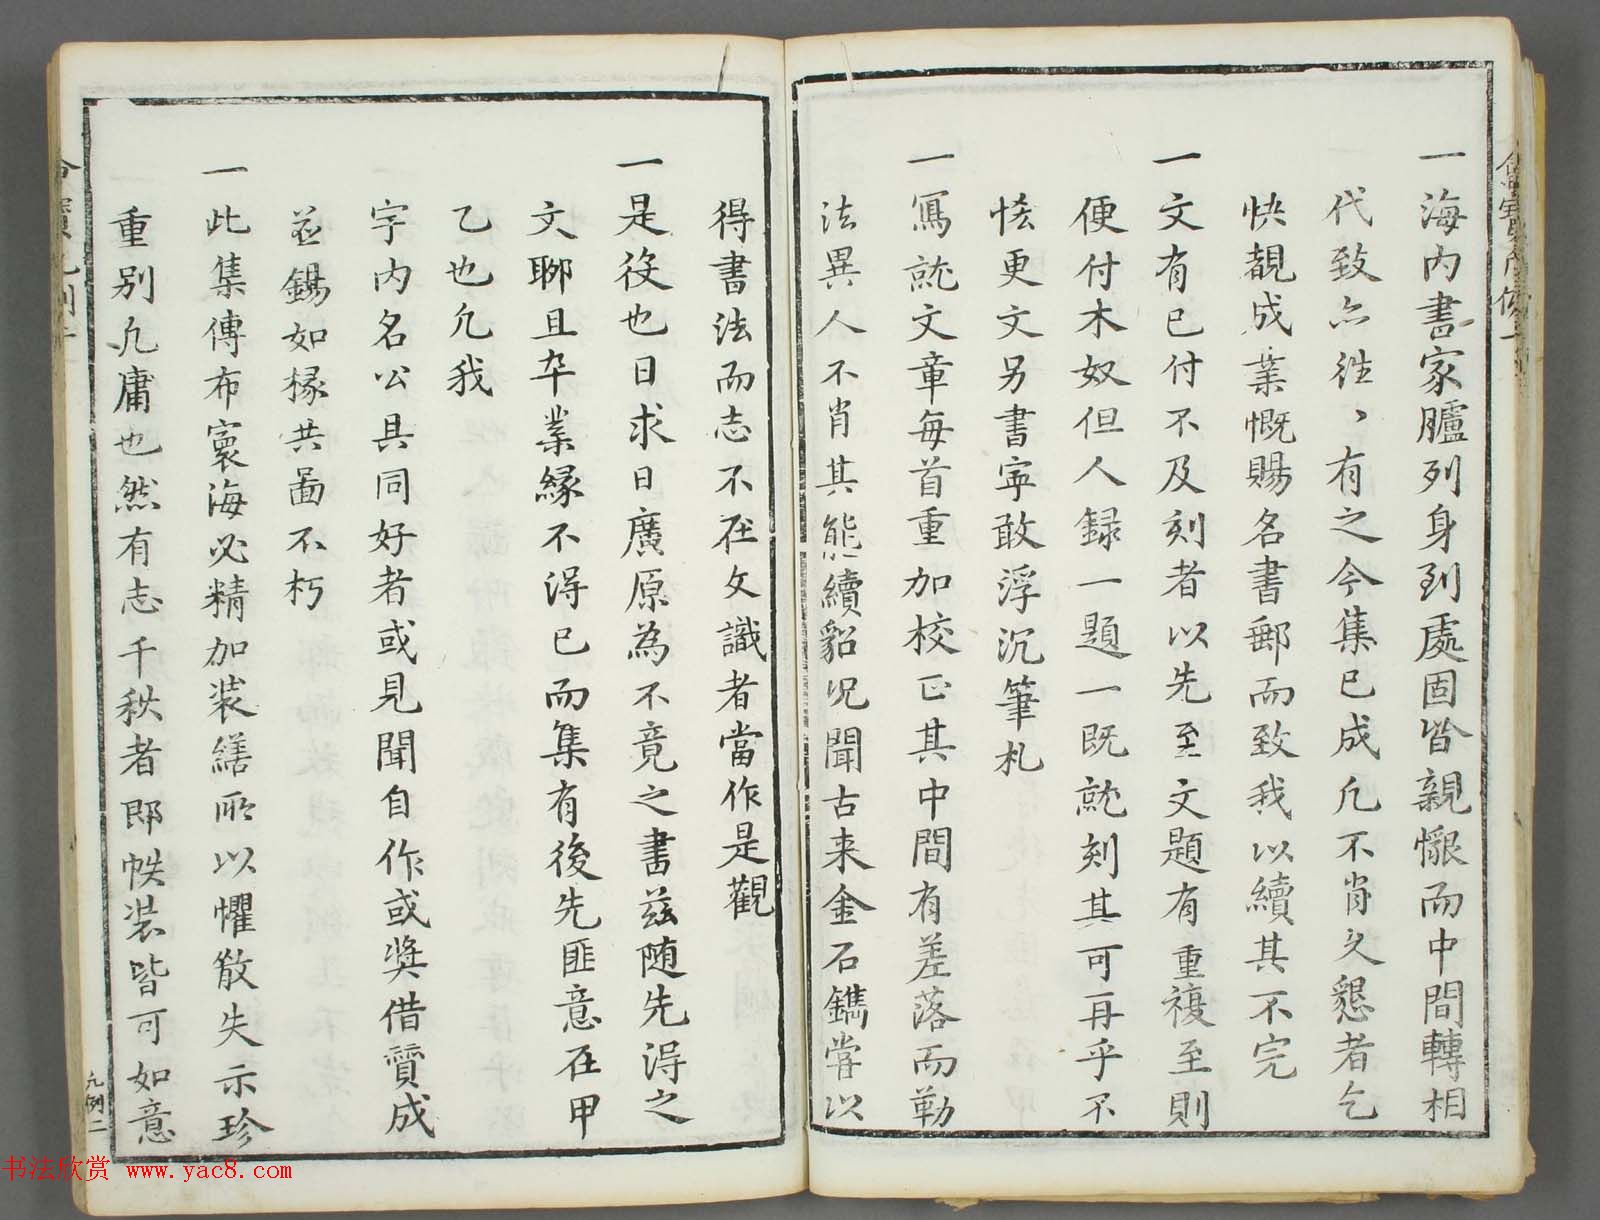 一海内書家臚列身到處固皆親懇而中間轉相
代致亦徃丶有之今集已成凢不肖久懇者乞
快覩成業慨賜名書郵而致我以續其不完
一文有已付不及刻者以先至文題有重複至則
便付木奴但人録一題一既就刻其可再乎不
恠更文另書寕敢浮沉筆札
一寫就文章每首重加校正其中間有差落而勒
法異人不肖其能續貂况聞古来金石鐫嘗以
得書法而志不在文識者當作是觀
一是役也日求日廣原為不竟之書兹随先淂之
文聊且卒業緣不淂已而集有後先匪意在甲
乙也凢我
宇内名公具同好者或見聞自作或奬借賫成
並錫如椽共畵不朽
一此集傳布寰海必精加装繕所以懼散失示珍
重别凢庸也然有志千秋者即帙装皆可如意
凢例二
书法欣赏 www.yac8.com